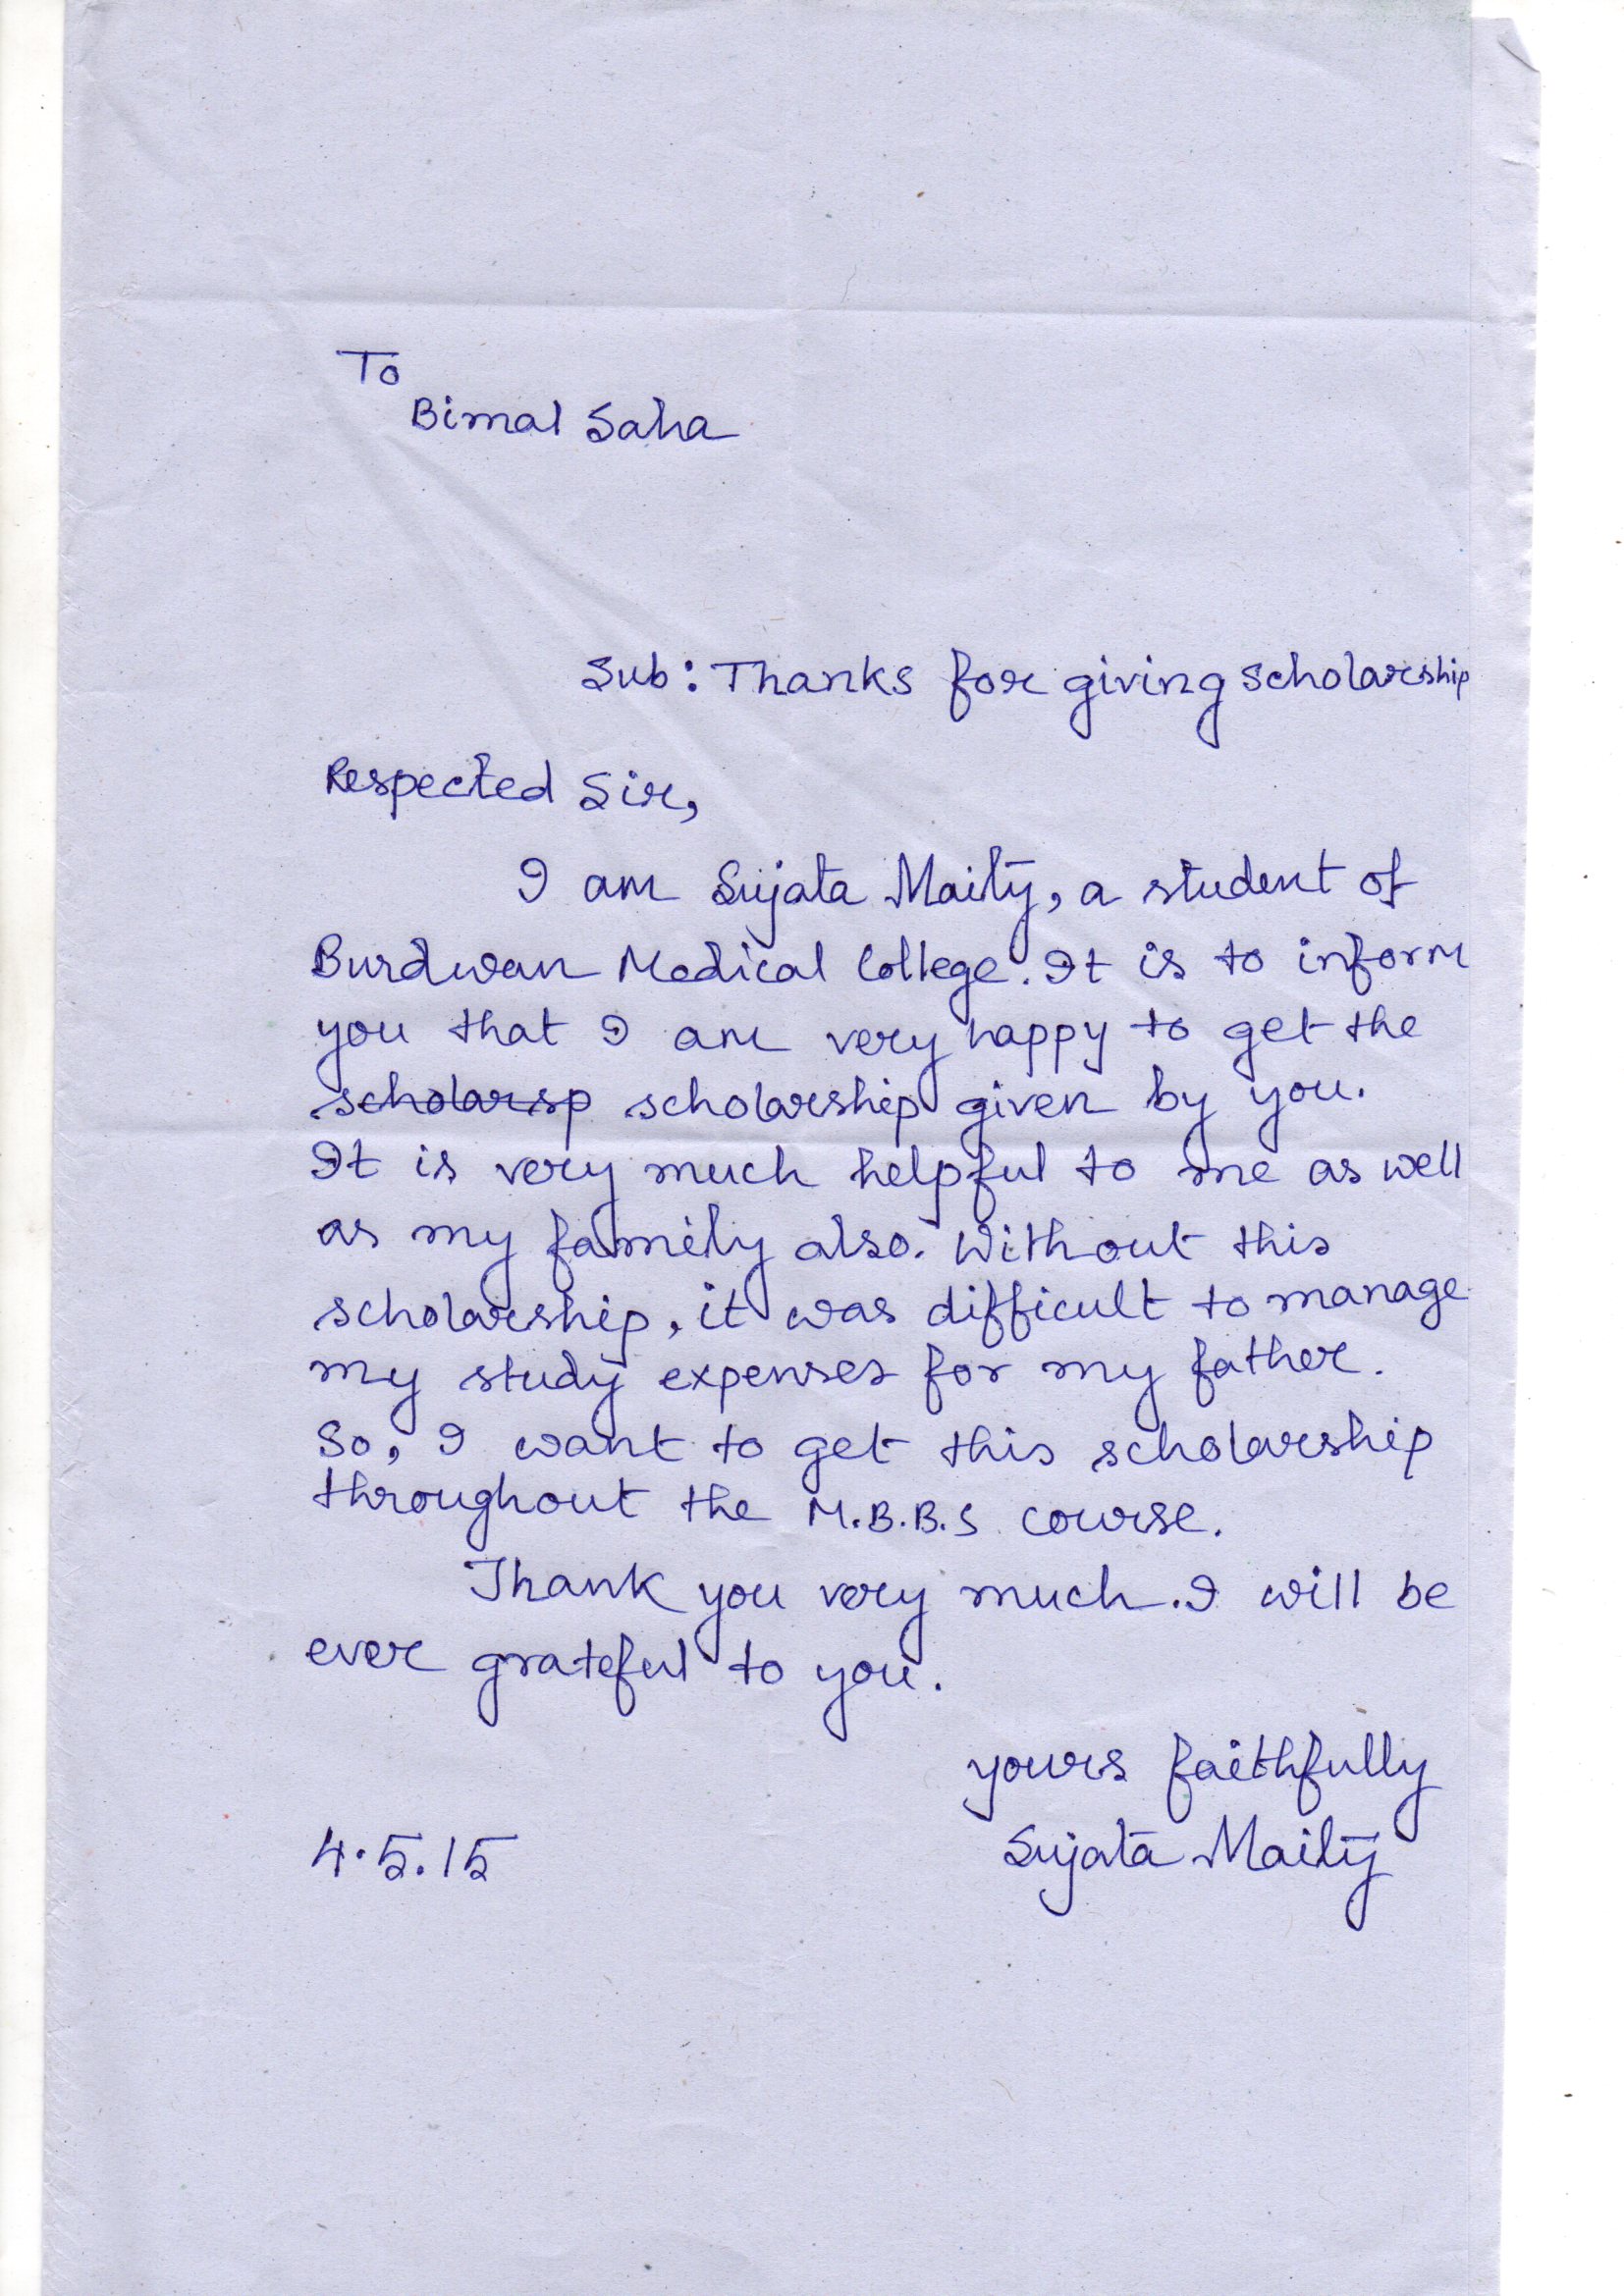 To
Bimal Saha
Sub: Thanks for giving scholarship
Respected Sir,
I am Sujata Maity, a student of
Burdwan Medical College. It is to inform
you that I am very happy to get the
scholarsp scholarship given by you.
It is very much helpful to me as well
as my family also. Without this
scholarship, it was difficult to manage
my study expenses for my father.
So, I want to get this scholarship
throughout the M.B.B.S course.
Thank you very much. I will be
ever grateful to you.
yours faithfully
4.5.15 Sujata Maity